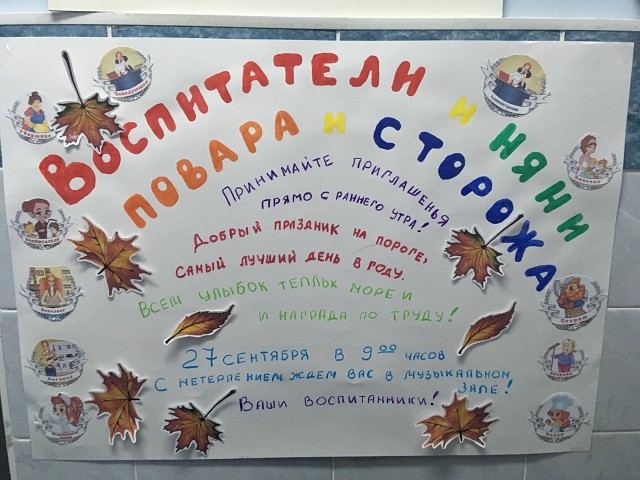 ВОСПИТАТЕЛИ И НЯНИ
ПОВАРА И СТОРОЖА
ПРИНИМАЙТЕ ПРИГЛАШЕНЬЯ
ПРЯМО С РАННЕГО УТРА!
ДОБРЫЙ ПРАЗДНИК НА ПОРОГЕ,
САМЫЙ ЛУЧШИЙ ДЕНЬ В ГОДУ.
ВСЕМ УЛЫБОК ТЕПЛЫХ МОРЕ И
И НАГРАДА ПО ТРУДУ!
27 СЕНТЯБРЯ В 9 00 ЧАСОВ
С НЕТЕРПЕНИЕМ ЖДЕМ ВАС В МУЗЫКАЛЬНОМ
ЗАЛЕ!
ВАШИ ВОСПИТАННИКИ!
ВОСПИТАТЕЛЬ